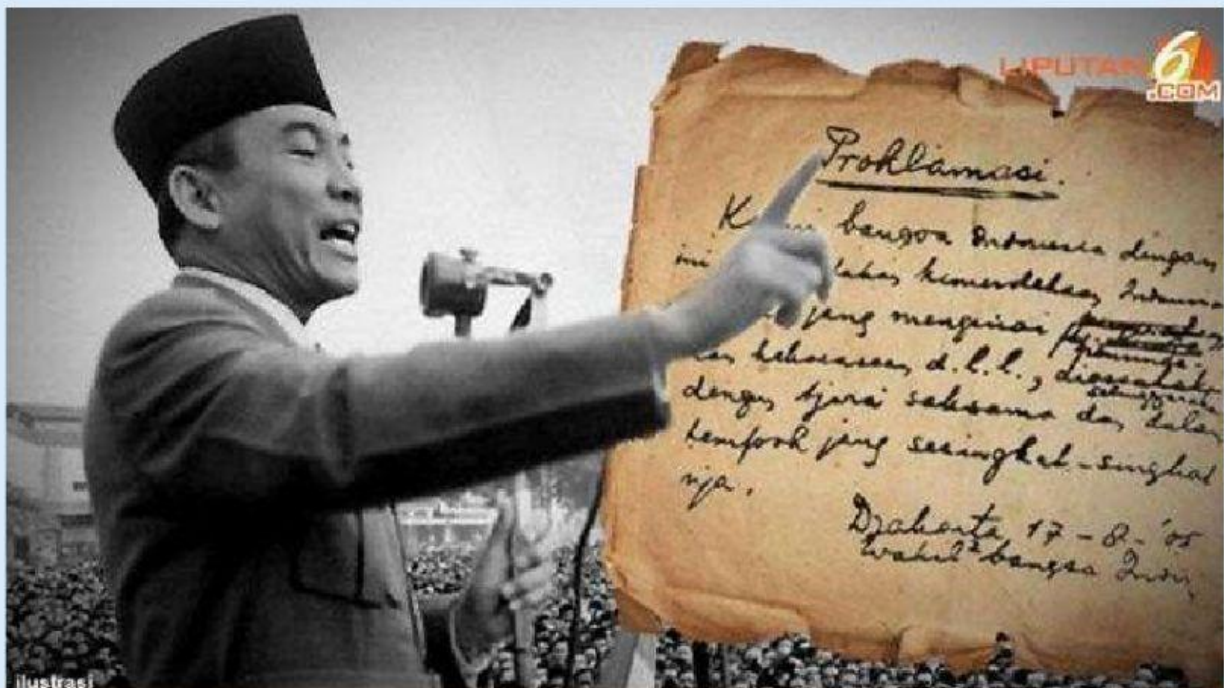 LIPUTAN 6 .COM
Proklamasi.
K mi bangsa Indonesia dengan
ini kemerdekaan Indones
jang mengenai
kekoeasaan, d.l.l.,
dengan tjara saksama dan dalam
tempoh jang sesingkat-singkat
nja.
Djakarta 17-8-'05
Wakil² bangsa Indon
ilustrasi